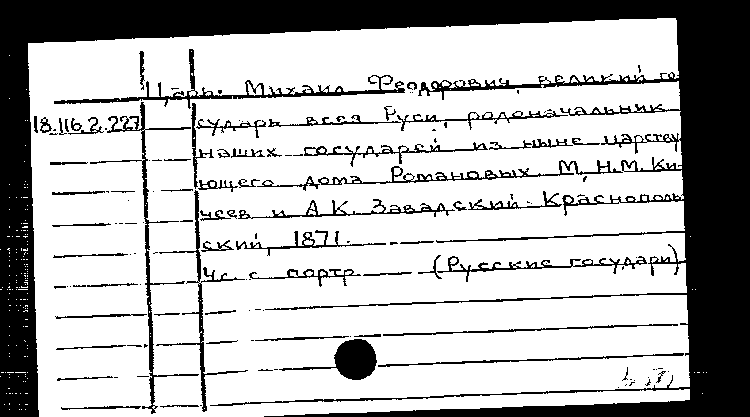 Царь Михаил Феодорович, великий го-
18.116.2.227 сударь всея Руси, родоначальник
наших государей из ныне царству-
ющего дома Романовых. М., Н.М. Ки-
чеев и А.К. Завадский-Краснополь-
ский, 1871.
4 с. с портр. (Русские государи)